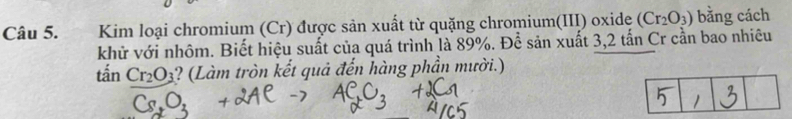 Câu 5. Kim loại chromium (Cr) được sản xuất từ quặng chromium(III) oxide (Cr₂O₃) bằng cách
khử với nhôm. Biết hiệu suất của quá trình là 89%. Để sản xuất 3,2 tấn Cr cần bao nhiêu
tấn Cr₂O₃? (Làm tròn kết quả đến hàng phần mười.)
Cr₂O₃ + 2Al -> Al₂O₃ + 2Cr
5 , 3